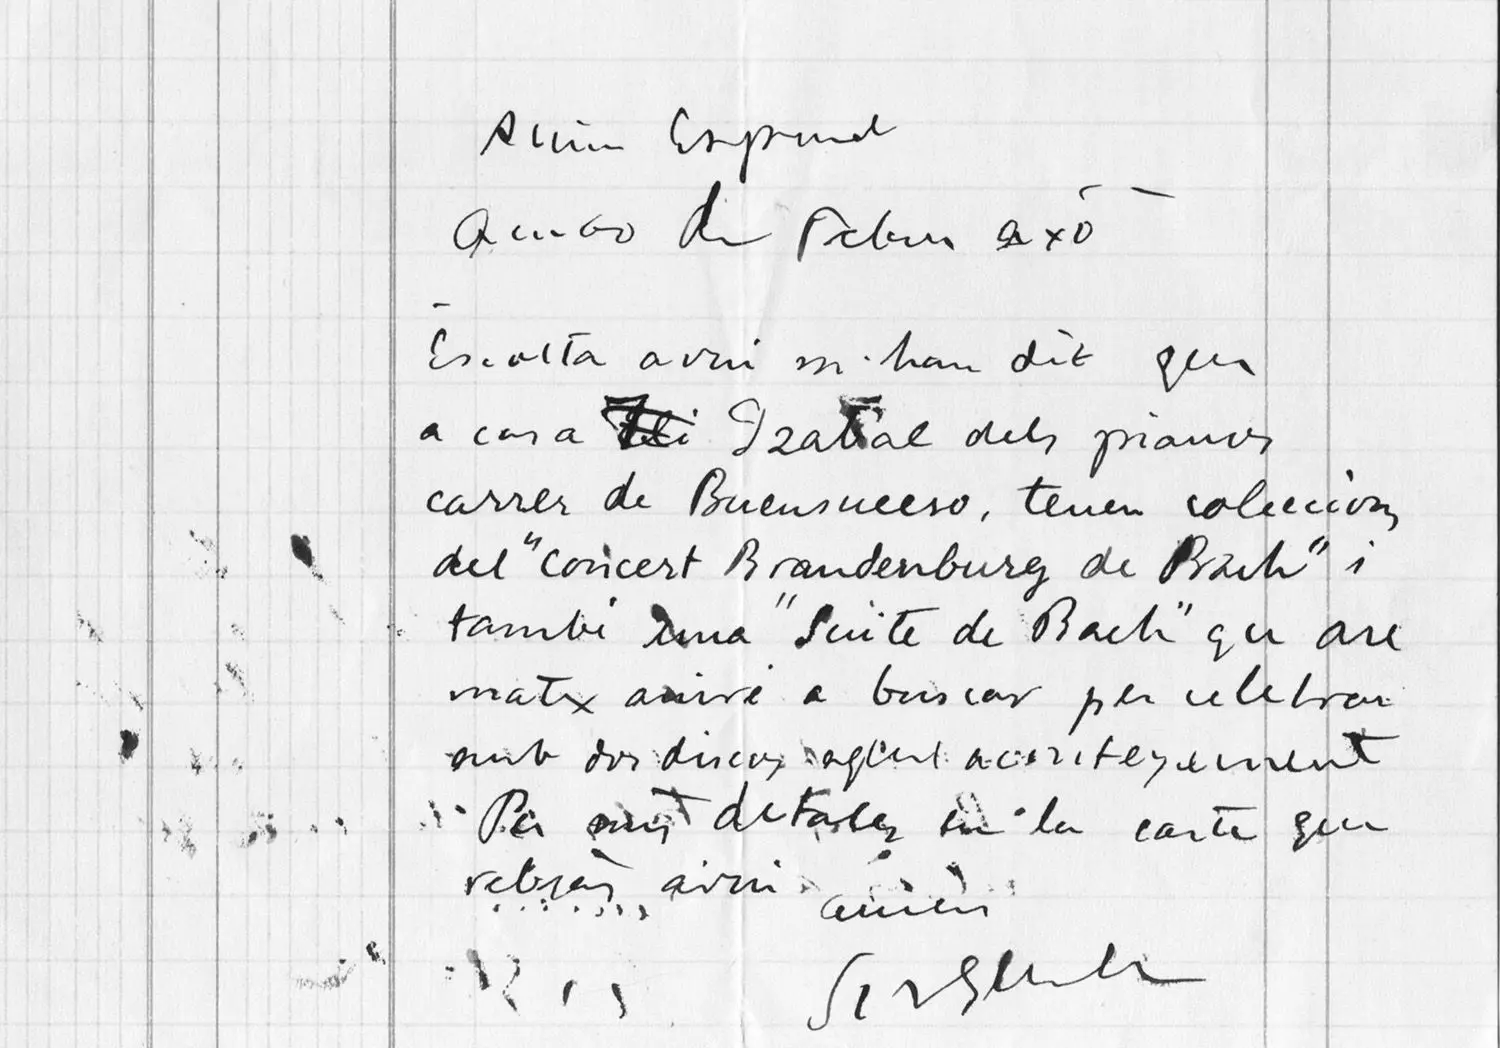 Amic Espinal
Acabo de rebre axó
Escolta avui m'han dit que
a casa Izabal dels pianos
carrer de Buensuceso, tenen coleccions
del "Concert Brandenburg de Bach" i
també una "Suite de Bach" que are
matex aniré a buscar per celebrar
amb dos discos aquet aconteyement
Per mes detalles en la carta que
rebrás avui